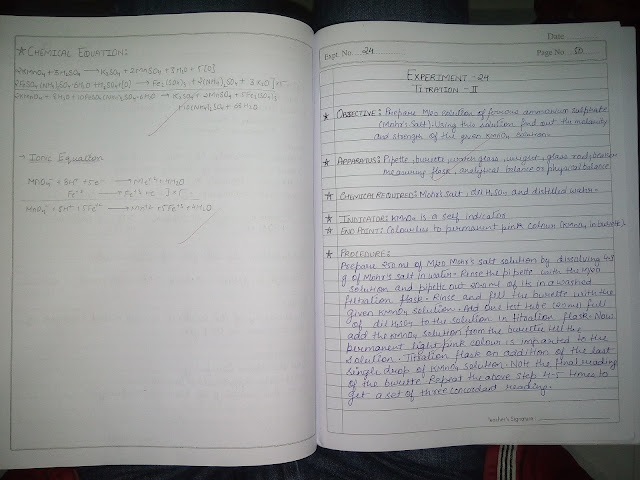 ★ CHEMICAL EQUATION:
2KMnO4 + 3H2SO4 → K2SO4 + 2MnSO4 + 3H2O + 5[O]
→ Ionic Equation
MnO4⁻ + 8H⁺ + 5e⁻ → Mn+2 + 4H2O
MnO4⁻ + 8H⁺ + 5Fe+2 → Mn+2 + 5Fe+3 + 4H2O
Date
Expt. No. 24
Page No. 50
EXPERIMENT - 24
TITRATION - II
★ OBJECTIVE: Prepare M/20 solution of ferrous ammonium sulphate
(Mohr's Salt). Using this solution find out the molarity
and strength of the given KMnO4 solution.
★ APPARATUS: Pipette, burette, watch glass, glass rod, beaker
measuring flask, analytical balance or physical balance
★ CHEMICAL REQUIRED: Mohr's salt, dil H2SO4 and distilled water.
★ INDICATOR: KMnO4 is a self indicator
★ END POINT: Colourless to permanent pink colour (KMnO4 in burette).
★ PROCEDURE:
Prepare 250 ml of M/20 Mohr's salt solution by dissolving 4.9
g of Mohr's salt in water. Rinse the pipette with the M/20
solution and pipette out ml of its in a washed
titration flask. Rinse and fill the burette with the
given KMnO4 solution. Add one test tube full
of dil H2SO4 to the solution in titration flask. Now
add the KMnO4 solution from the burette till the
permanent light pink colour is imparted to the
solution. Titration flask on addition of the last
single drop of KMnO4 solution. Note the final reading
of the burette. Repeat the above step 4-5 times to
get a set of three concordant reading.
Teacher's Signature :